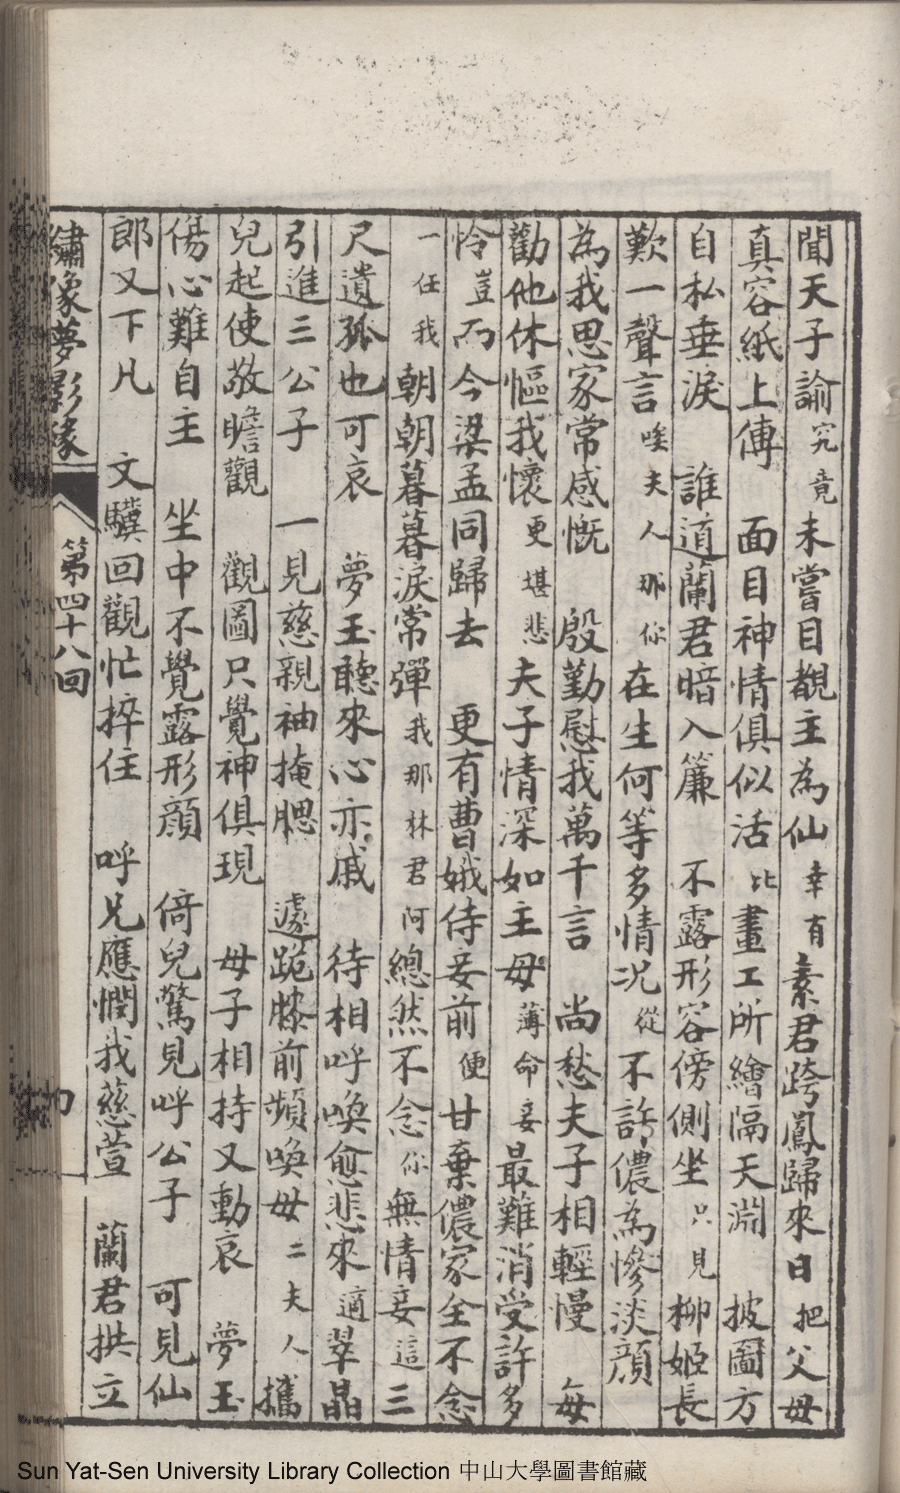 聞天子諭究竟未嘗目覩主為仙幸有素君跨鳳歸來日把父母
真容紙上傳　面目神情俱似活比畫工所繪隔天淵　披圖方
自私垂淚　誰道蘭君暗入簾　不露形容傍側坐只見柳姬長
歎一聲言唉夫人那你在生何等多情况從不許儂為慘淡顔
為我思家常感慨　殷勤慰我萬千言　尚愁夫子相輕慢　每
勸他休慪我懷更堪悲夫子情深如主母薄命妾最難消受許多
怜豈而今梁孟同歸去　更有曹娥侍妾前便甘棄儂家全不念
一任我朝朝暮暮淚常彈我那林君阿總然不念你無情妾這三
尺遺孤也可哀　夢玉聽來心亦戚　待相呼喚愈悲來適翠晶
引進三公子　一見慈親袖掩腮　遽跪膝前頻喚母二夫人攜
兒起使敬瞻觀　觀圖只覺神俱現　母子相持又動哀　夢玉
傷心難自主　坐中不覺露形顔　倚兒驚見呼公子　可見仙
郎又下凡　文驥回觀忙捽住　呼兄應憫我慈萱　蘭君拱立
繡像夢影緣　第四十八回
Sun Yat-Sen University Library Collection 中山大學圖書館藏